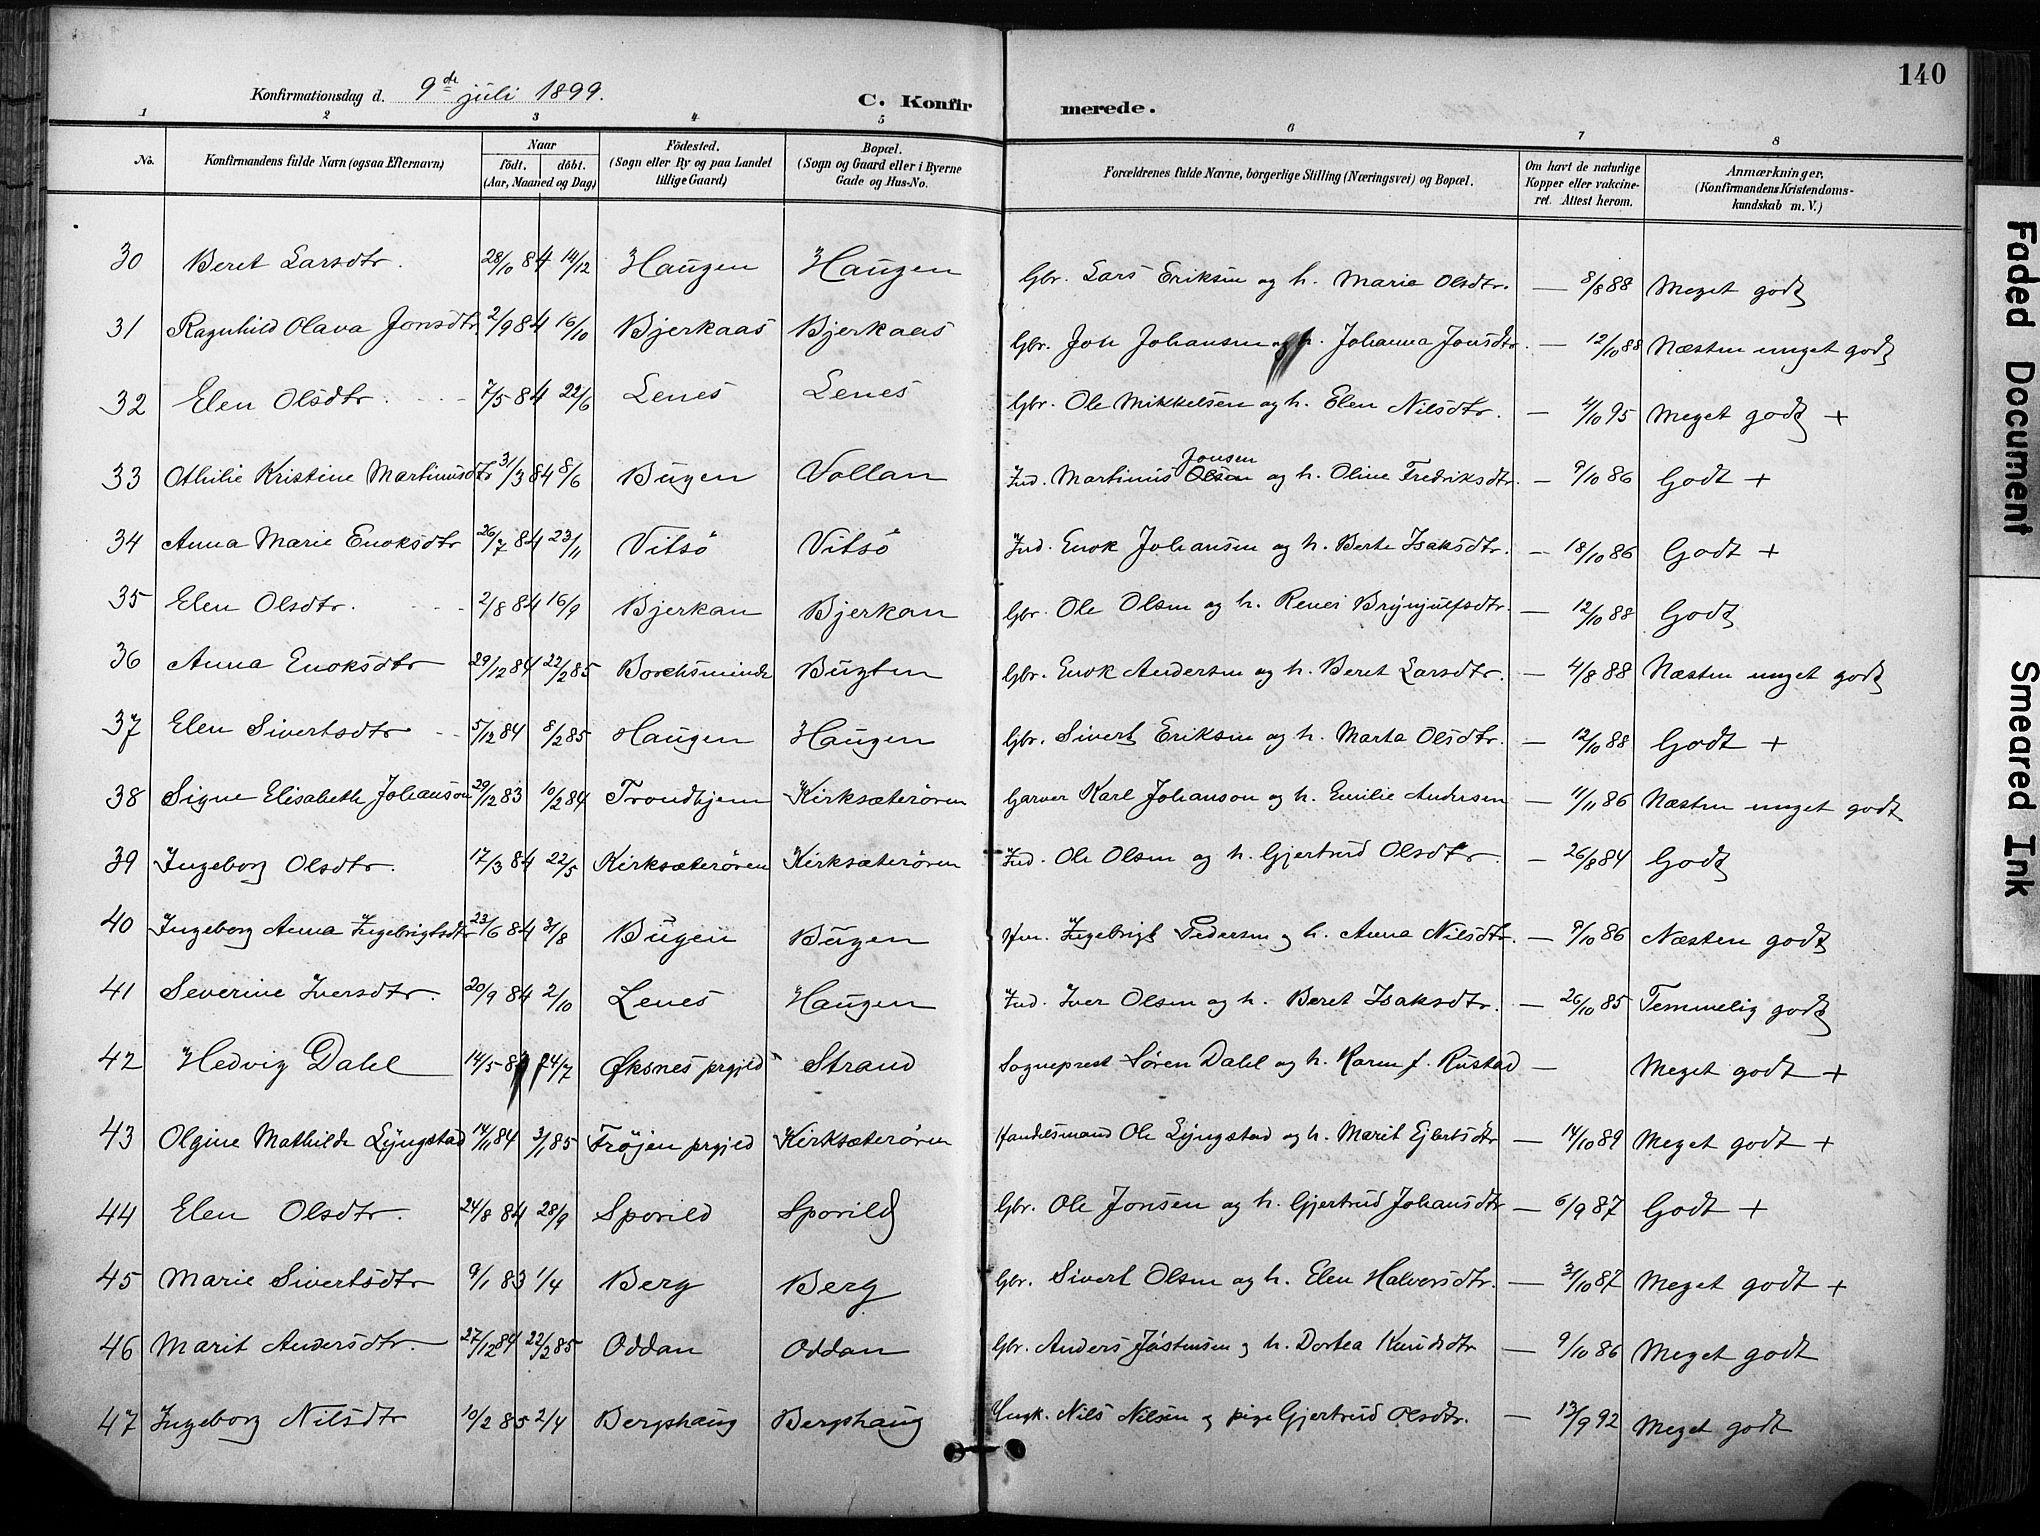 140
Konfirmationsdag d. 9de juli 1899.
C. Konfirmerede.
1 2 3 4 5 6 7 8
No. Konfirmandens fulde Navn (ogsaa Efternavn) Naar födt. döbt. (Aar, Maaned og Dag) Födested. (Sogn eller By og paa Landet tillige Gaard) Bopæl. (Sogn og Gaard eller i Byerne Gade og Hus-No. Forældrenes fulde Navne, borgerlige Stilling (Næringsvei) og Bopæl. Om havt de naturlige Kopper eller vakcineret. Attest herom. Anmærkninger. (Konfirmandens Kristendomskundskab m. V.)
30 Beret Larsdtr. 28/10 84 14/12 Haugen Haugen Gbr. Lars Eriksen og h. Marie Olsdtr. — 8/8 88 Meget godt
31 Ragnhild Olava Jonsdtr. 2/9 84 16/10 Bjerkaas Bjerkaas Gbr. Jon Johansen og h. Johanna Jonsdtr. — 12/10 88 Næsten meget godt
32 Elen Olsdtr. 7/5 84 22/6 Lenes Lenes Gbr. Ole Mikkelsen og h. Elen Nilsdtr. — 4/10 95 Meget godt +
33 Othilie Kristine Martinusdtr 31/3 84 8/6 Bugen Vollan Ind. Martinus Olsen Jonsen og h. Oline Fredriksdtr. — 9/10 86 Godt +
34 Anna Marie Enoksdtr 26/7 84 23/11 Vitsö Vitsö Ind. Enok Johansen og h. Berte Isaksdtr. — 18/10 86 Godt +
35 Elen Olsdtr. 2/8 84 16/9 Bjerkan Bjerkan Gbr. Ole Olsen og h. Brynjulfsdtr. — 12/10 88 Godt
36 Anna Enoksdtr 29/12 84 22/2 85 Borchsminde Gbr. Enok Andersen og h. Beret Larsdtr. — 4/8 88 Næsten meget godt
37 Elen Sivertsdtr 5/12 84 8/2 85 Haugen Haugen Gbr. Sivert Eriksen og h. Marta Olsdtr. — 12/10 88 Godt +
38 Signe Elisabeth Johanson 29/12 83 10/2 84 Trondhjem Kirksæterören Garver Karl Johanson og h. Emilie Andersen — 11/11 86 Næsten meget godt
39 Ingeborg Olsdtr. 17/3 84 22/5 Kirksæterören Kirksæterören Ind. Ole Olsen og h. Gjertrud Olsdtr. — 26/8 84 Godt
40 Ingeborg Anna Ingebrigtsdtr 23/6 84 31/8 Bugen Bugen Ingebrigt Pedersen og h. Anna Nilsdtr. — 9/10 86 Næsten godt
41 Severine Iversdtr. 20/9 84 2/10 Lenes Haugen Ind. Iver Olsen og h. Beret Isaksdtr. — 26/10 85 Temmelig godt
42 Hedvig Dahl 14/5 /7 Øksnes prgjld Strand Sogneprest Søren Dahl og h. Karen f. Rustad — Meget godt +
43 Olgine Mathilde Lyngstad 14/11 84 3/1 85 Fröjen prgjeld Kirksæterören Handelsmand Ole Lyngstad og h. Marit Ejlertsdtr — 14/10 89 Meget godt +
44 Elen Olsdtr. 24/8 84 28/9 Sporild Sporild Gbr. Ole Jonsen og h. Gjertrud Johansdtr — 6/9 87 Godt +
45 Marie Sivertsdtr 9/1 83 1/4 Berg Berg Gbr. Sivert Olsen og h. Elen Halvorsdtr. — 3/10 87 Meget godt +
46 Marit Andersdtr. 27/12 84 22/2 85 Oddan Oddan Gbr. Anders Jöstensen og h. Dortea Knudsdtr — 9/10 86 Meget godt
47 Ingeborg Nilsdtr 10/2 85 2/4 Bergshaug Bergshaug Ungk. Nils Nilsen og pige Gjertrud Olsdtr. — 13/9 92 Meget godt
Faded Document
Smeared Ink